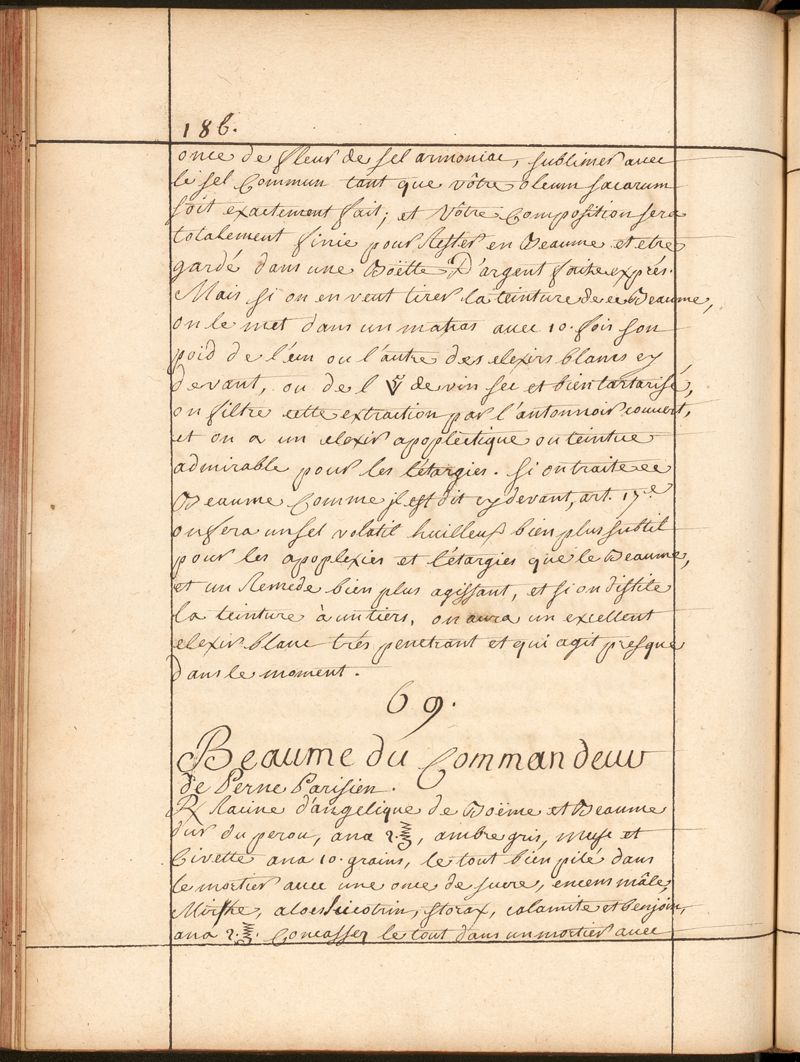 186.
once de fleur de sel armoniac, sublimer avec
le sel Commun tant que vôtre oleum sacarum
soit exactement fait; et Vôtre Composition sera
totalement finie pour Rester en Beaume et etre
gardé dans une Boëtte D'argent faite exprés.
Mais si on en veut tirer la teinture de ce Beaume,
on le met dans un matras avec 10. fois son
poid de l'un ou l'autre des elexirs blancs cy
devant, ou de l' de vin sec et bien tartarisé,
on filtre cette extraction par l'antonnoir couvert,
et on a un elexir apoplectique ou teintue
admirable pour les létargies. Si on traite ce
Beaume Comme il est dit cy devant, art. 17.e
on fera un sel volatil huilleux bien plus subtil
pour les apoplexies et létargies que le Beaume,
et un Remede bien plus agissant, et si on distile
la teinture à un tiers, on aura un excellent
elexir blanc trés penetrant et qui agit presque
dans le moment.
69.
Beaume du Commandeur
de Perne Parisien.
℞ Racine d'angelique de Boëme et Beaume
dur du perou, ana 2.ʒ, ambre gris, musc et
Civette ana 10. grains, le tout bien pilé dans
le mortier avec une once de sucre, encens mâle,
Mirrhe, aloes Sicotrin, storax, calamite et benjoin,
ana 2.ʒ. Concasser le tout dans un mortier avec